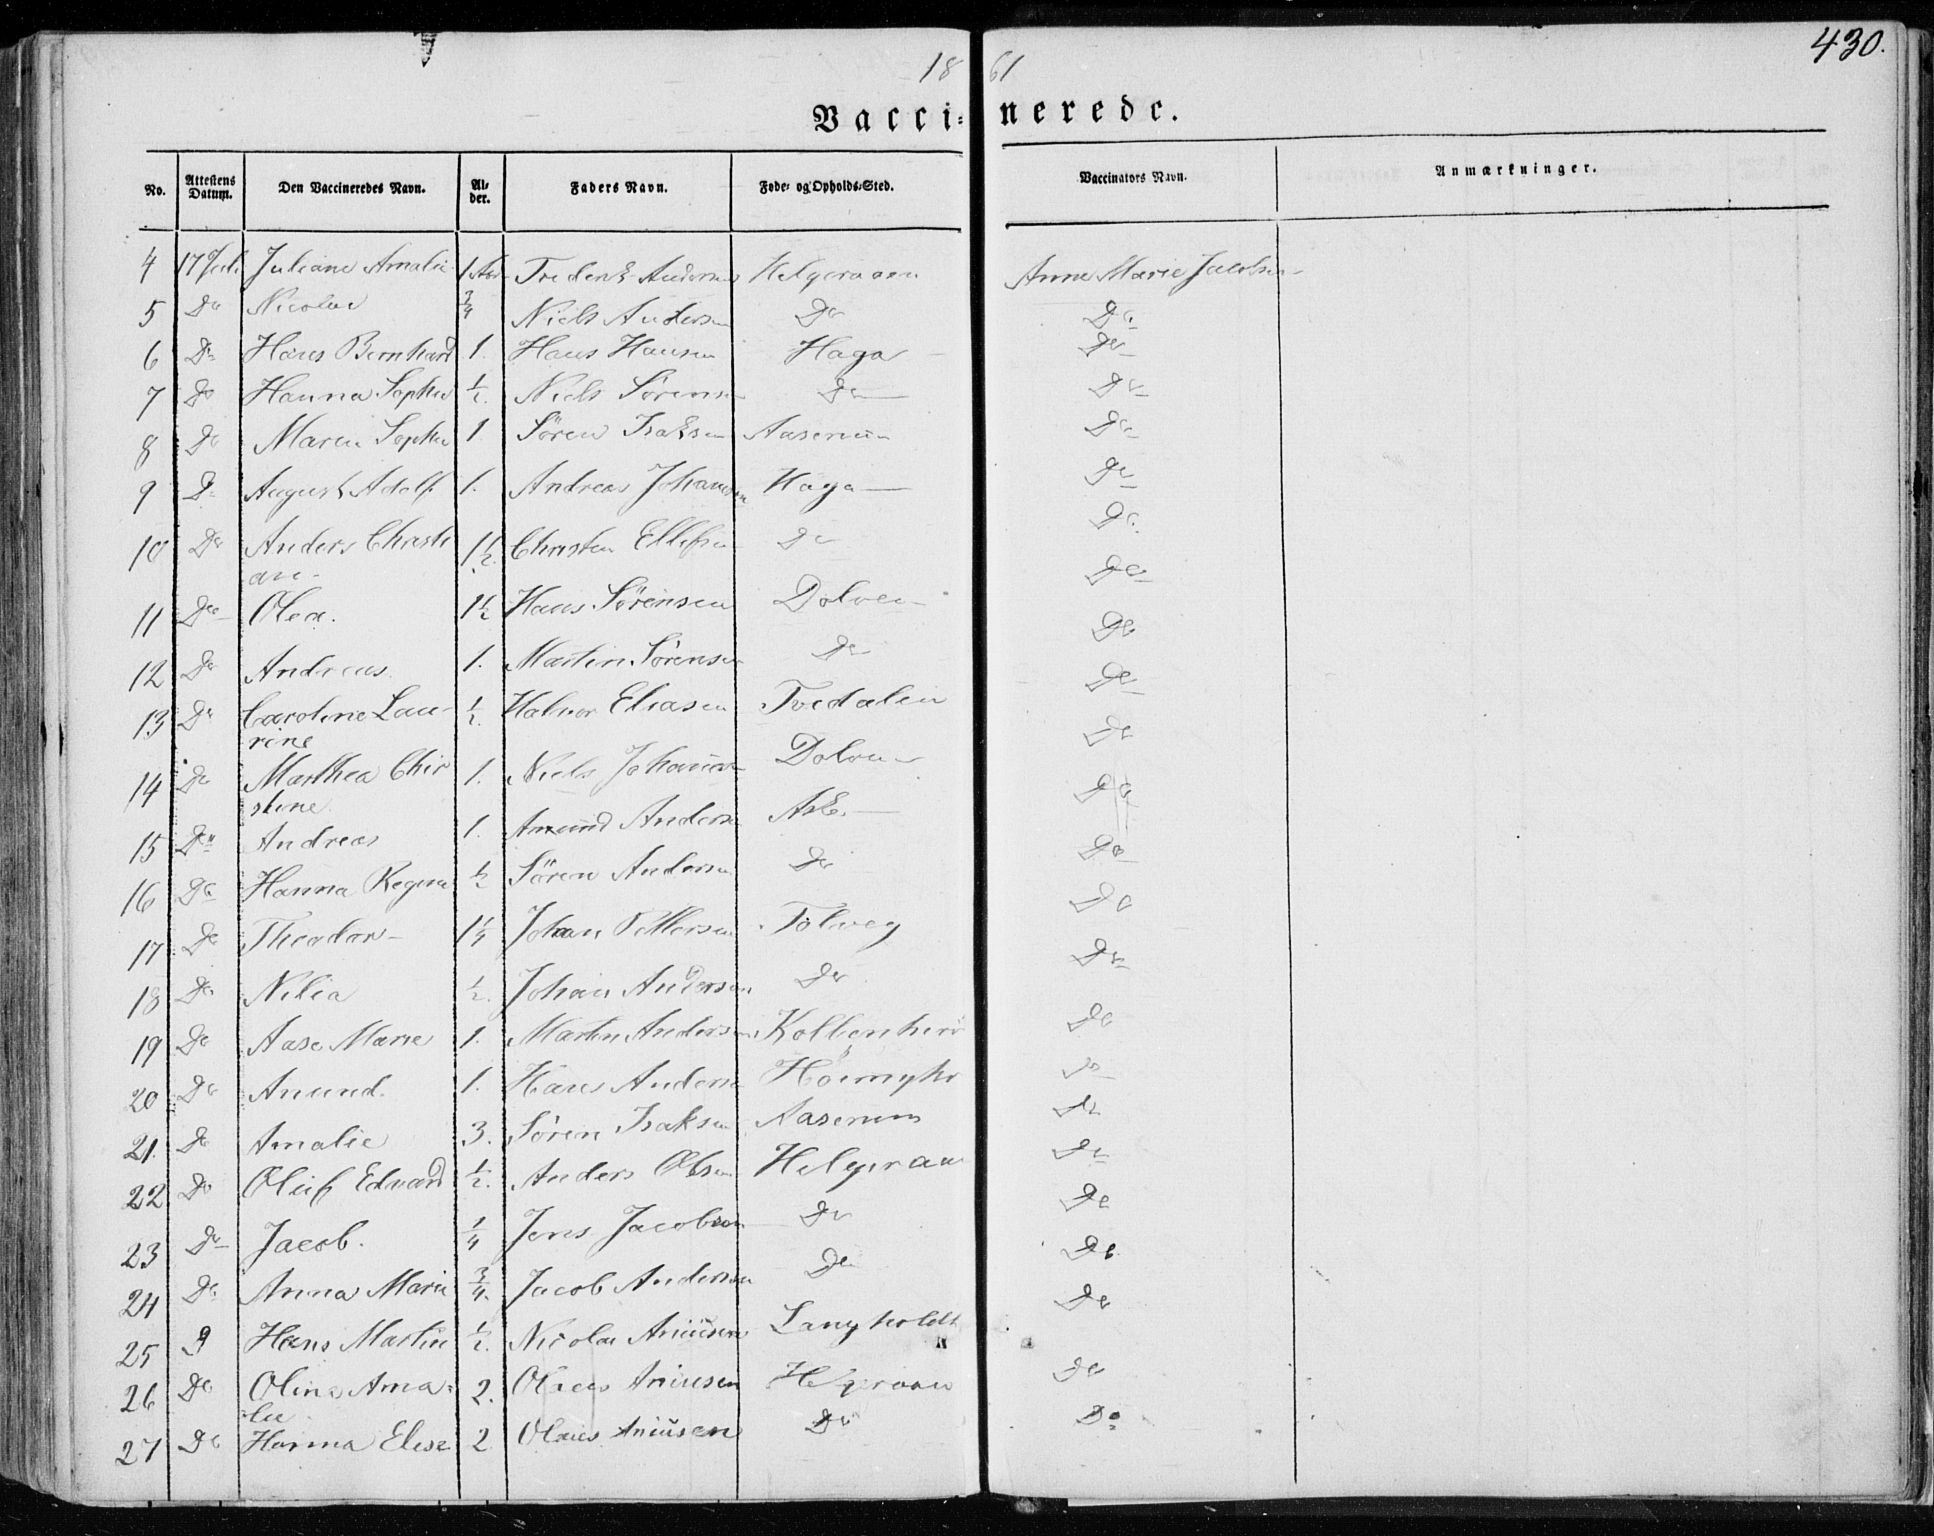 430.
18 61
Vacci- nerede.
No. Attestens Datum. Den Vaccineredes Navn. Al- der. Faders Navn. Føde- og Opholds-Sted. Vaccinators Navn. Anmærkninger.
4 17 Juli Juliane Amalie 1 Aar Frederik Andersen Helgeraaen Anne Marie Jacobsen
5 Do Nicolai 3/4 Niels Andersen Do Do
6 Do Hans Bernhard 1. Hans Hansen Haga Do
7 Do Hanna Sophie 1/2. Niels Sørensen Do Do
8 Do Maren Sophie 1. Sören Isaksen Aaserum Do
9 Do August Adolf 1. Andreas Johansen Haga Do
10 Do Anders Christi 1 1/2. Christen Ellefsen Do Do
ane.
11 Do Olea. 1 1/2 Hans Sørensen Dolven Do
12 Do Andreas 1. Martin Sørensen Do Do
13 Do Caroline Lau- 1/2. Halvor Eliasen Tvedalen Do
rine
14 Do Marthea Chir 1. Niels Johansen Dolven Do
stine.
15 Do Andreas 1. Amund Andersen Ask. Do
16 Do Hanna Regina 1/2 Sören Andersen Do Do
17 Do Theodor 1 1/4 Johan Pettersen Tolveg Do
18 Do Nilia 1/2. Johan Andersen Do Do
19 Do Aase Marie 1. Martin Andersen Kolbenherø Do
20 Do Anund. 1. Hans Andersen Do
21. Do Amalie 3. Sören Isaksen Aaserum Do
22 Do Oluf Edvard 1/2. Anders Olsen Helgeraaen Do
23 Do Jacob. 1/4 Jens Jacobsen Do Do
24 Do Anna Marie 3/4. Jacob Andersen Do Do
25 D Hans Martin 1/2. Nicolai Aniüsen Langholdt Do
26 Do Olina Ama- 2. Olaus Aniusen Helgeraaen Do
lie.
27 Do Hanna Elise 2 Olaus Aniüsen Do Do